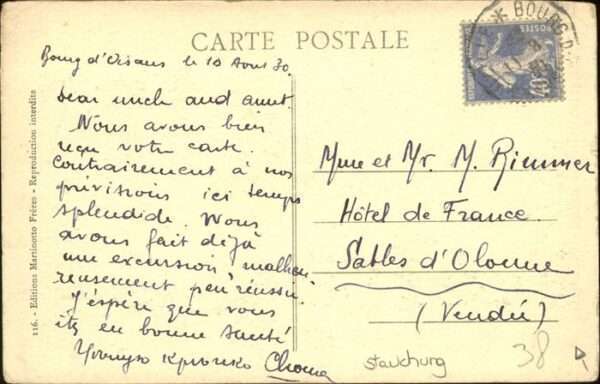 CARTE POSTALE
BOURG-D
POSTES
40
Bourg d'Oisans le 10 Août 30.
Dear uncle and aunt.
Nous avons bien
reçu votre carte.
Contrairement à nos
prévisions ici temps
splendide. Nous
avons fait déjà
une excursion, malheu-
reusement peu réussie.
J'espère que vous
êts en bonne santé
Mme et Mr. M.
Hôtel de France
Sables d'Olonne
(Vendée)
38
116. - Editions Martinotto Frères - Reproduction interdite